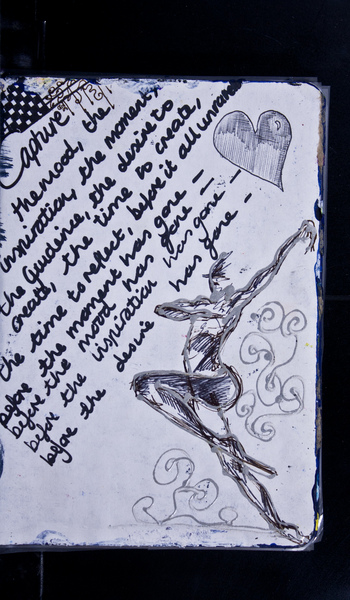 Capture
the mood, the
inspiration, the moment,
the Guidence, the desire to
create, the time to create,
the time to reflect, before it all unravels
before the moment has gone –
before the mood has gone –
before the inspiration has gone –
before the desire has gone –